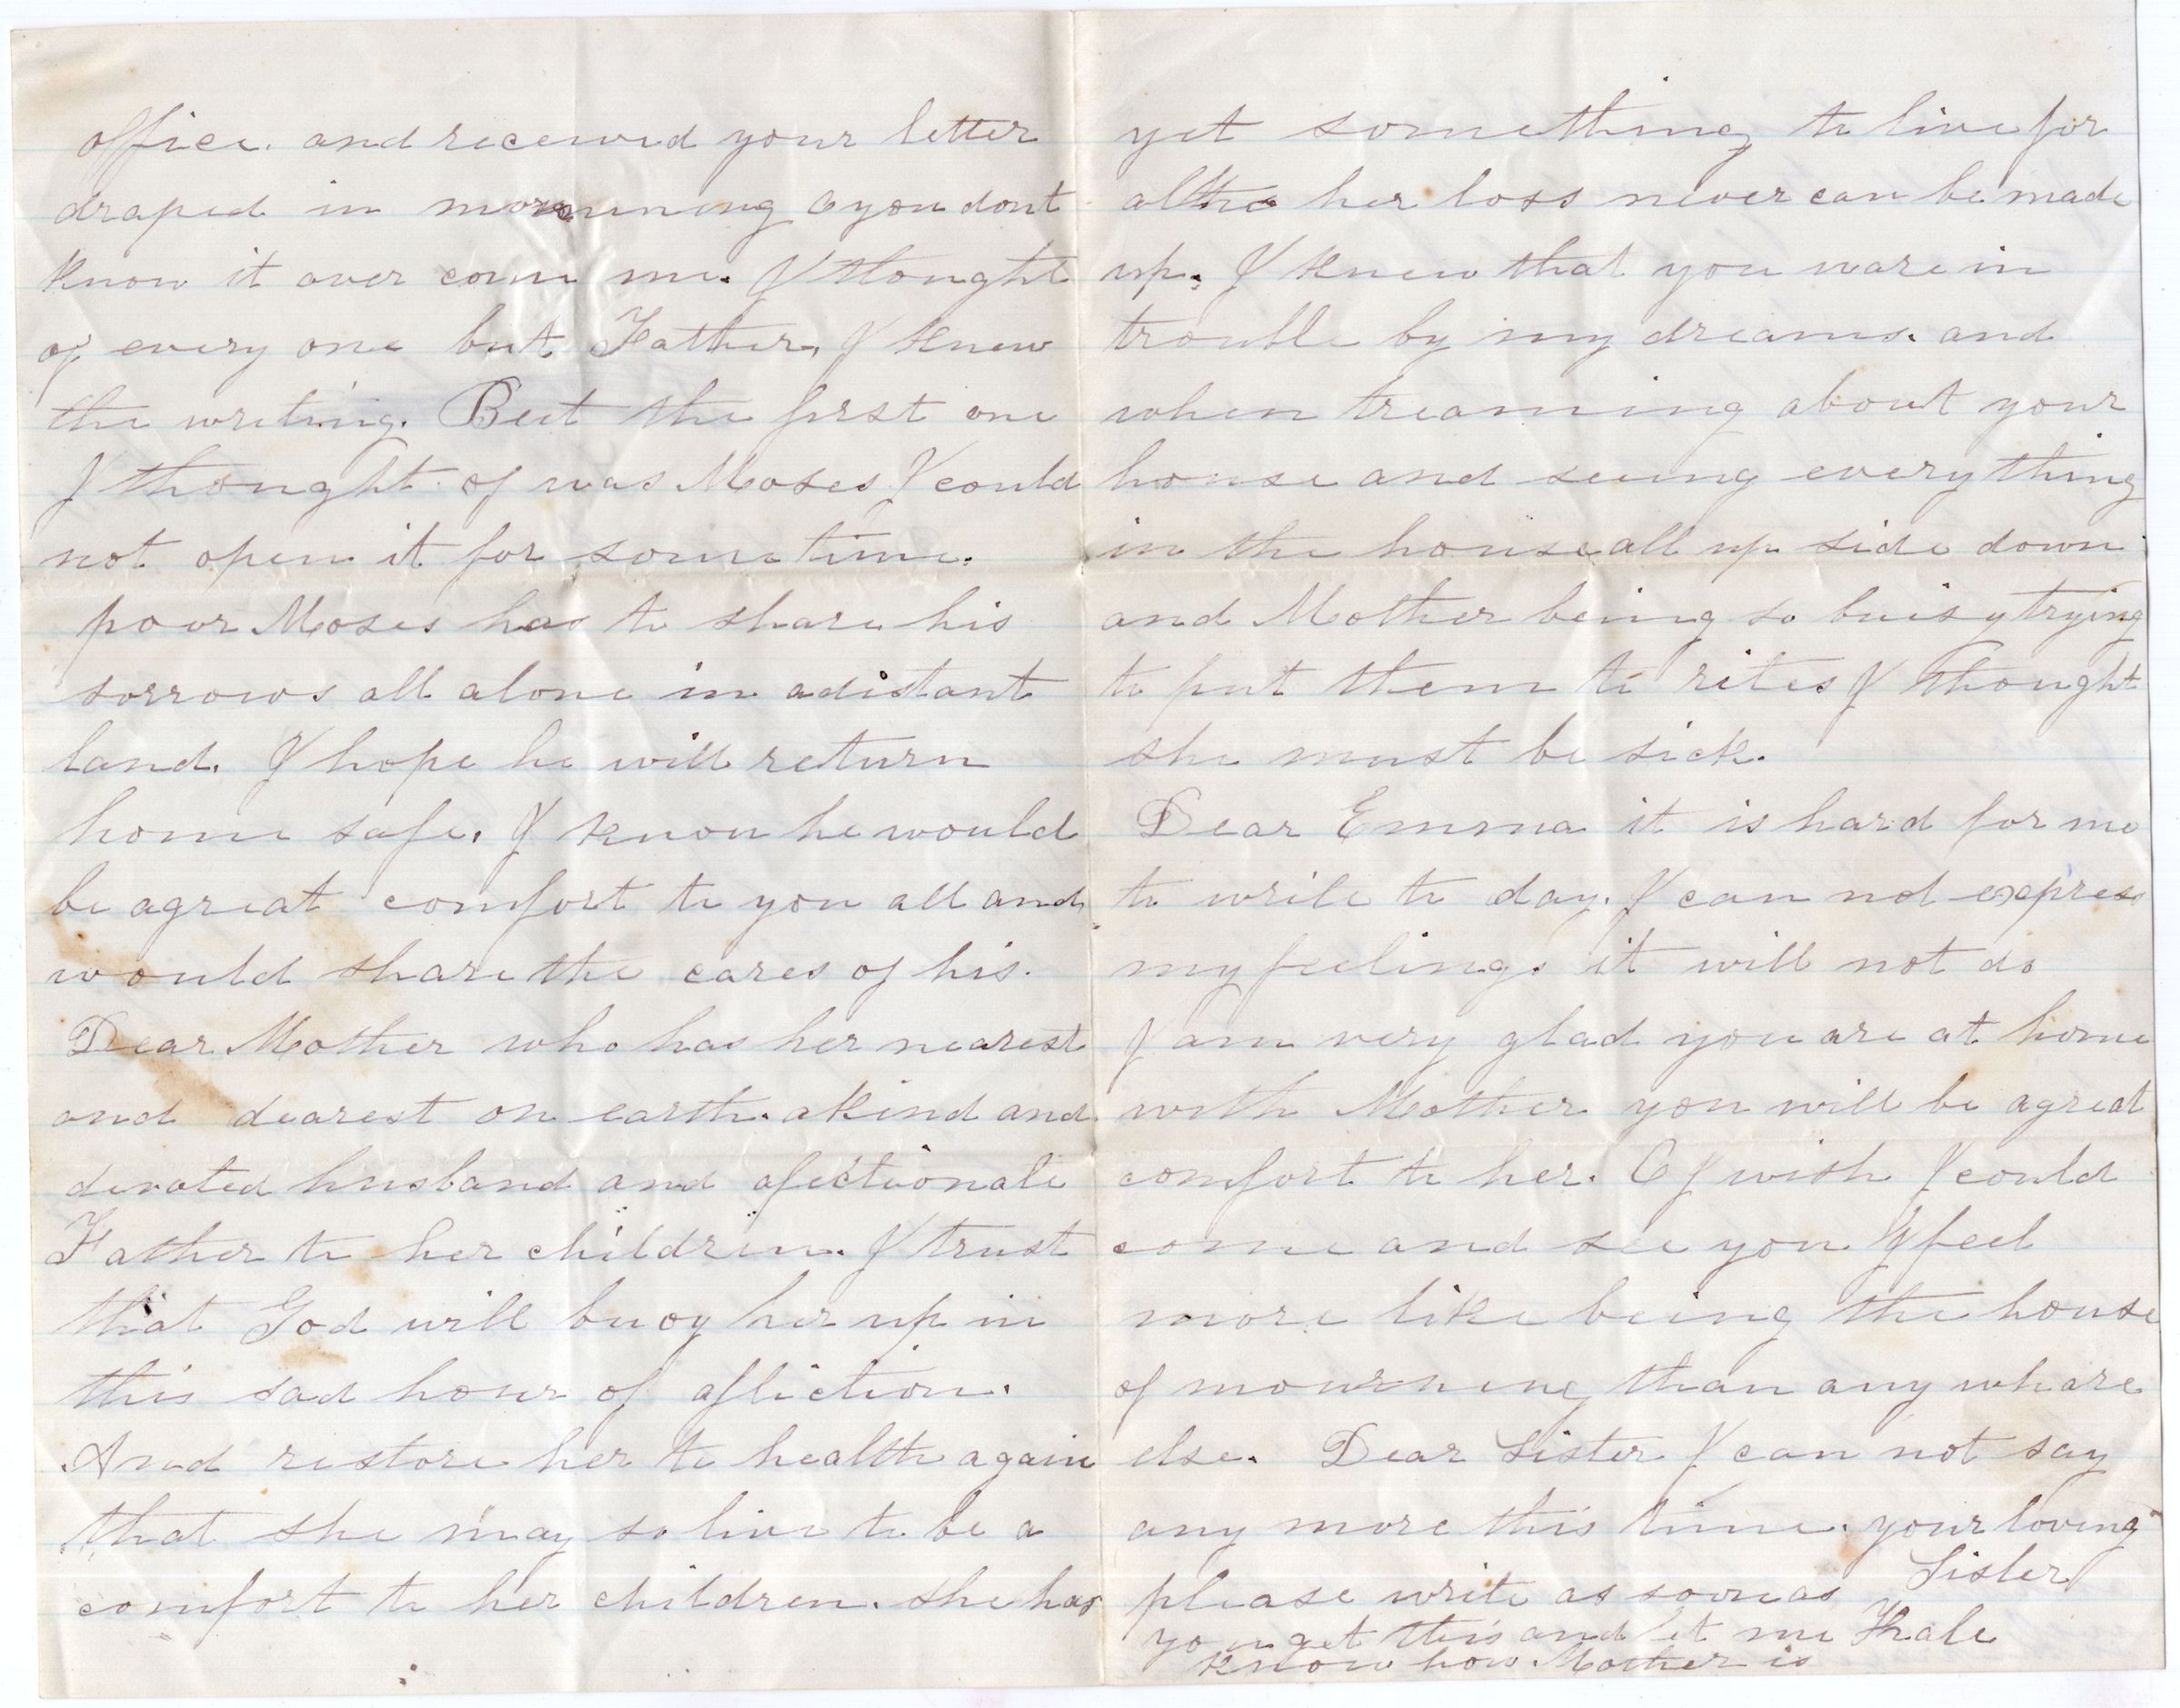 office. and received your letter
draped in mornuning O you dont
know it over come me. I thought
of every one but Father, I knew
the writing. But the first one
I thought of was Moses I could
not open it for some time.
poor Moses has to share his
sorrows all alone in a distant
land. I hope he will return
home safe. I know he would
be agreat comfort to you all and
would share the cares of his.
Dear Mother who has her nearest
and dearest on earth. a kind and
devoted husband and afectionate
Father to her children. I trust
that God will buoy her up in
this sad hour of afliction.
And restore her to health again
that she may so live to be a
comfort to her children. she has
yet something to live for
altho her loss never can be made
up. I knew that you ware in
trouble by my dreams. and
when treaming about your
house and seeing every thing
in the house all up side down
and Mother being so buisy trying
to put them to rites I thought
she must be sick.
Dear Emma it is hard for me
to write to day. I can not express
my feelings it will not do
I am very glad you are at home
with Mother you will be agreat
comfort to her. O I wish I could
come and see you I feel
more like being the house
of mourning than any whare
else. Dear Sister I can not say
any more this time. your loving
Sister
please write as soon as
you get this and let me
know how Mother is